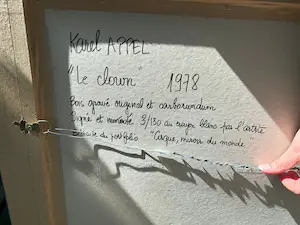 Karel APPEL
"Le clown" 1978
bois gravé original et carborundum
signé et numéroté 3/130 au crayon blanc par l'artiste
du portfolio "Cirque, miroir du monde"